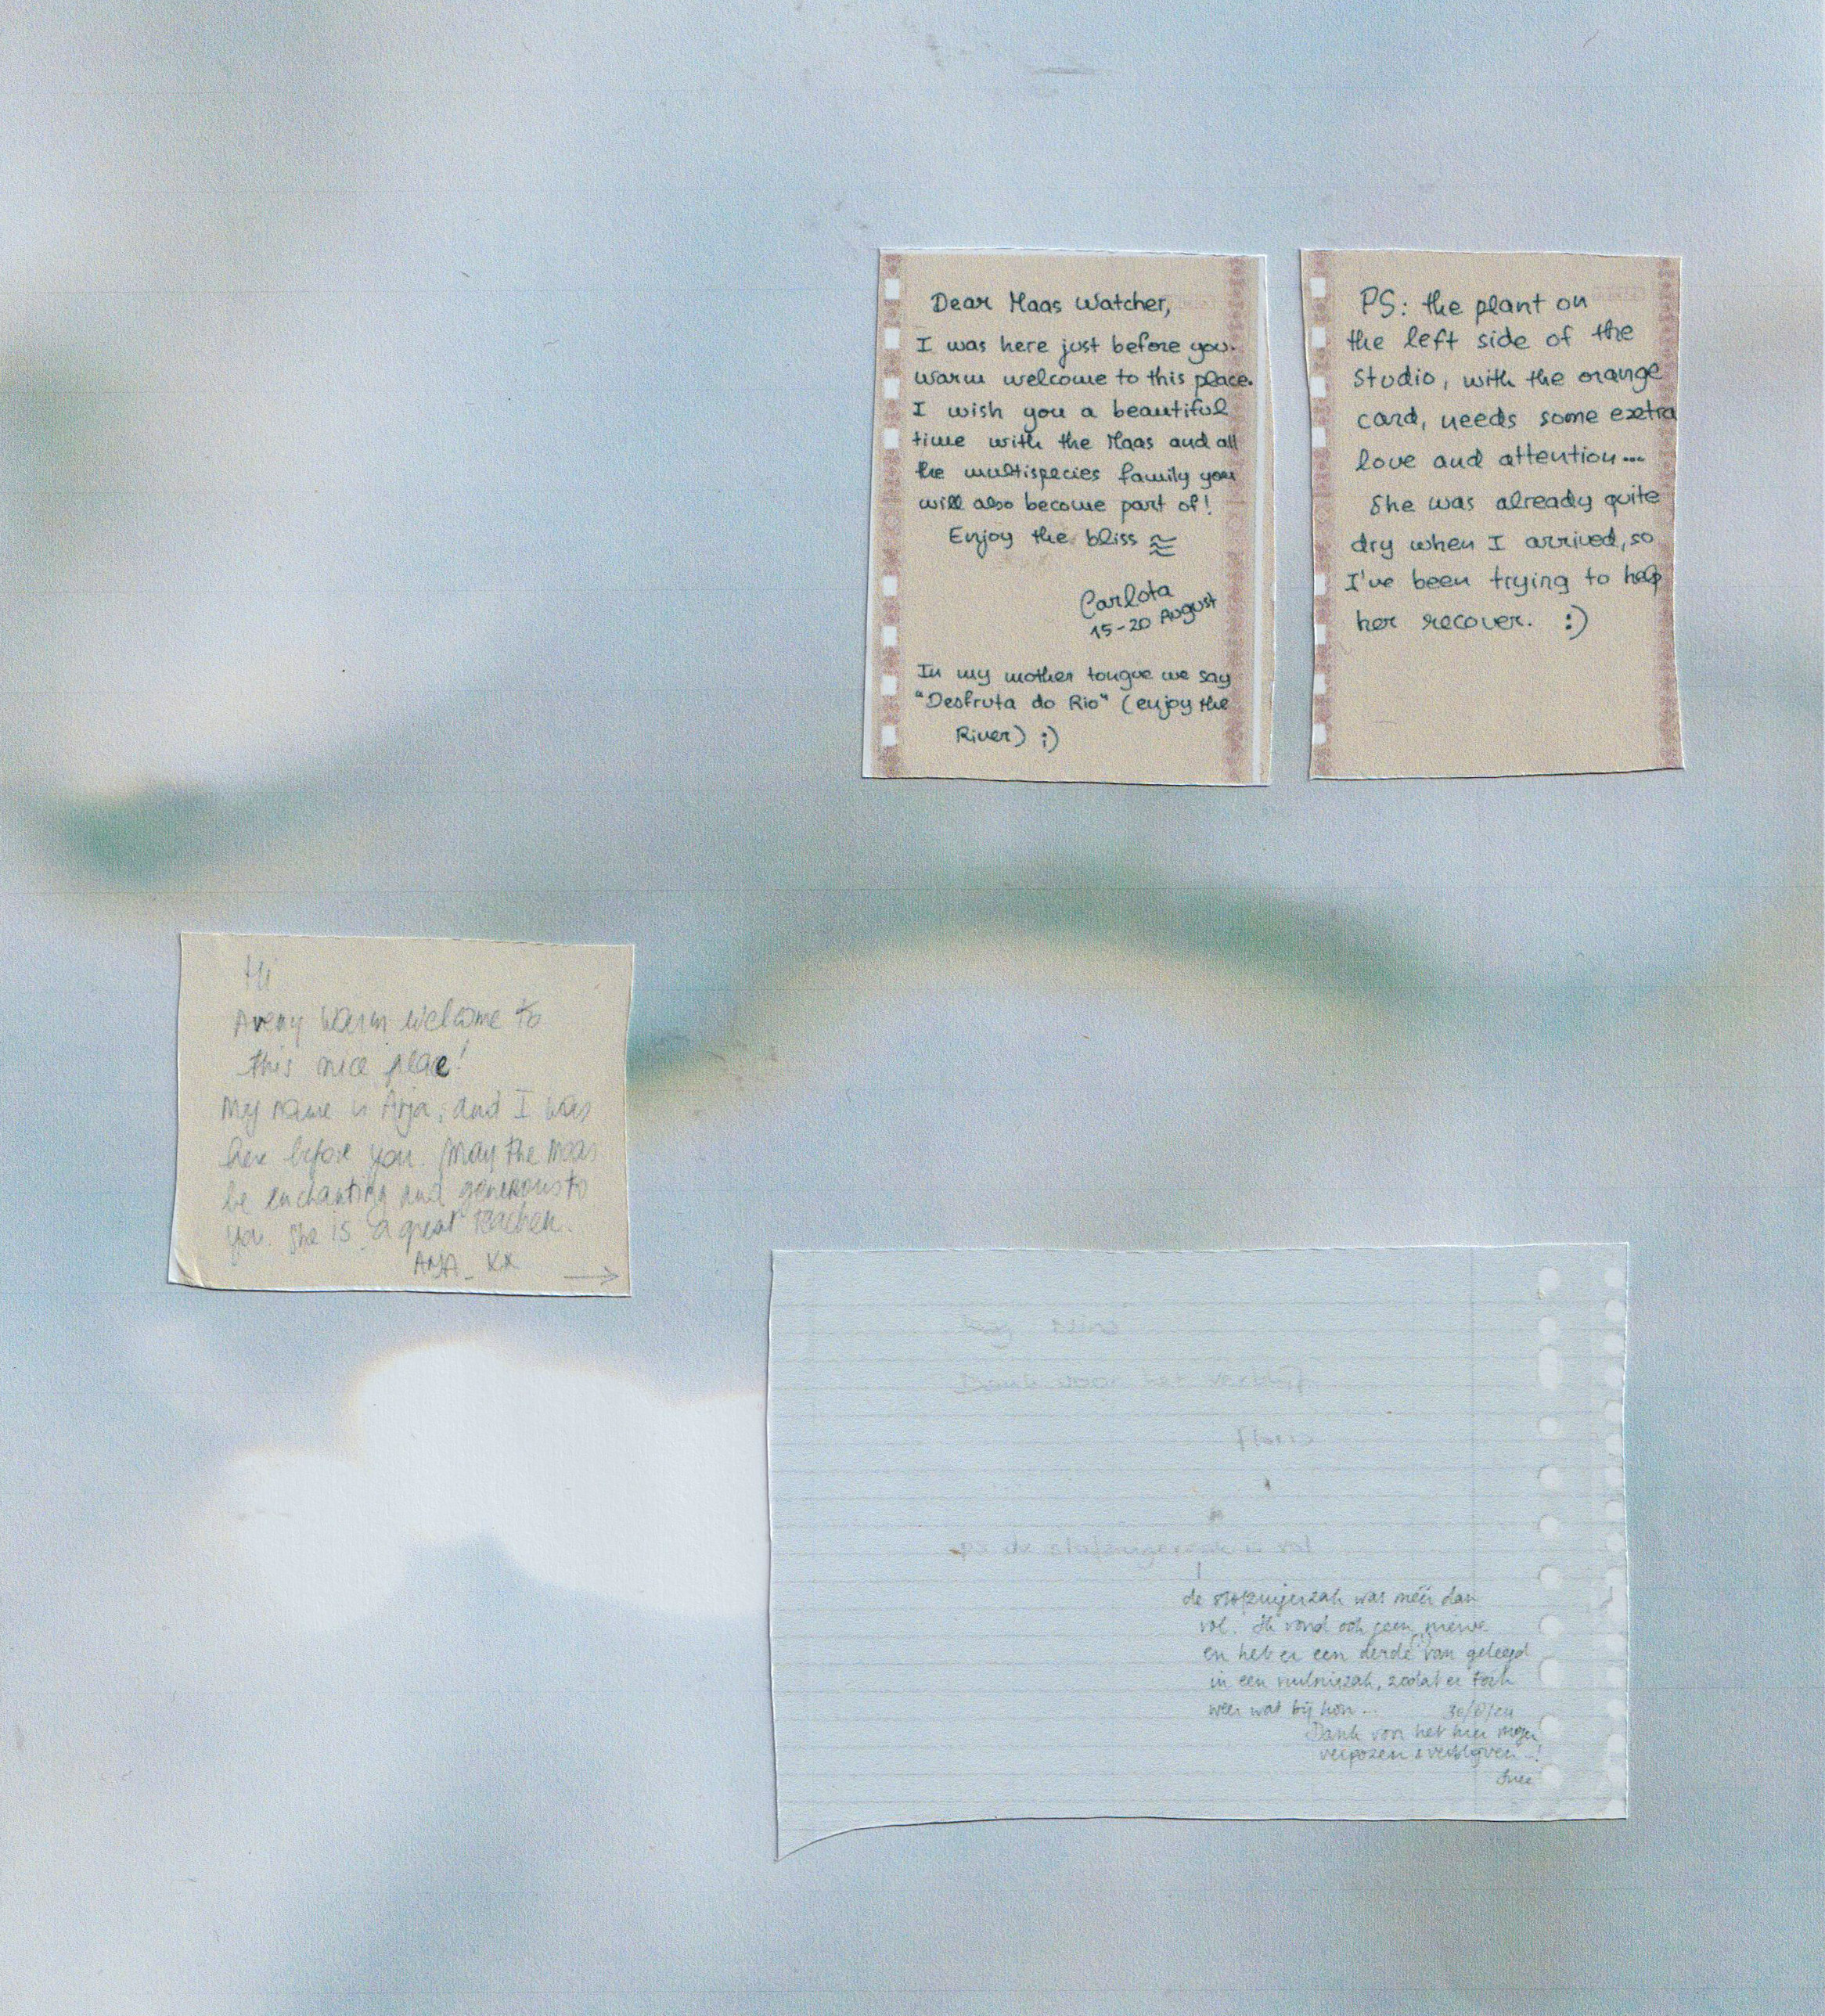 Dear Maas Watcher,
I was here just before you.
Warm welcome to this place.
I wish you a beautiful
time with the Maas and all
the multispecies family you
will also become part of!
Enjoy the bliss
Carlota
15-20 August
In my mother tongue we say
"Desfruta do Rio" (enjoy the
River) ;)
PS: the plant on
the left side of the
studio, with the orange
card, needs some exetra
love and attention...
She was already quite
dry when I arrived, so
I've been trying to help
her recover. :)
Hi
A very warm welcome to
this nice place!
My name is Arja, and I was
here before you. May the Maas
be enchanting and generous to
you. She is a great teacher.
ARJA_ xx
Dank voor het verblijf
Floris
ps de stofzuigerzak is vol
de stofzuigerzak was méér dan
vol. Ik vond ook geen nieuwe
en heb er een derde van geleegd
in een vuilniszak, zodat er toch
weer wat bij kon...
Dank voor het hier mogen
verpozen & verblijven ..!